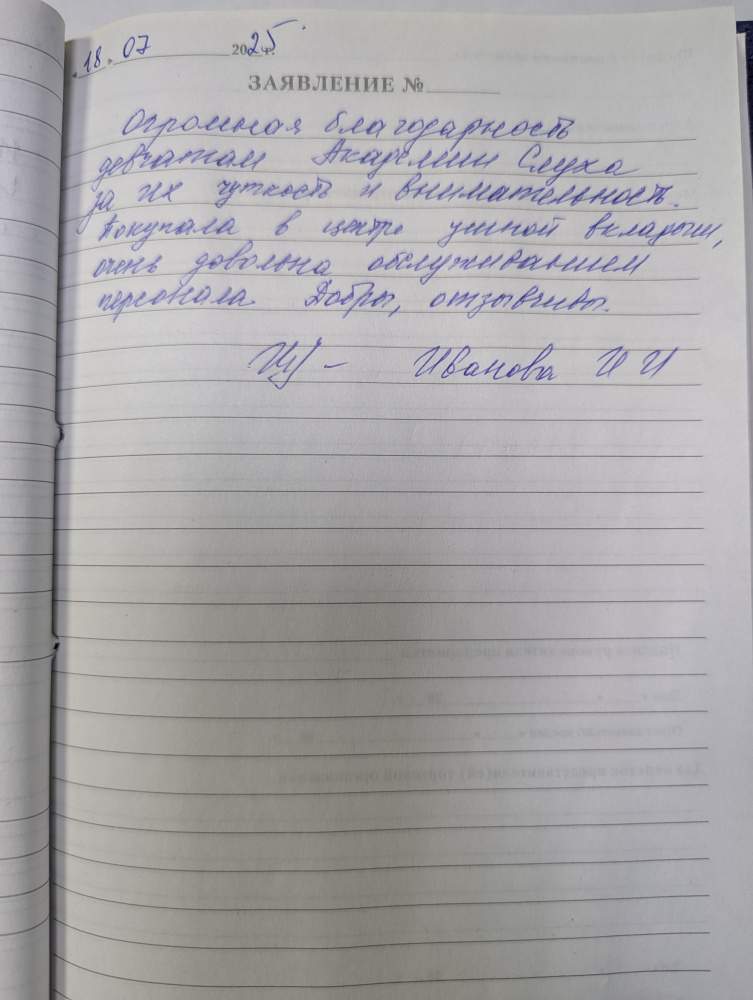 18. 07 2025 г.
ЗАЯВЛЕНИЕ №
Огромная благодарность
девчатам Академии Слуха
за их чуткость и внимательность.
Покупала в центре ушной вкладыш,
очень довольна обслуживанием
персонала. Добры, отзывчивы.
Иванова И И